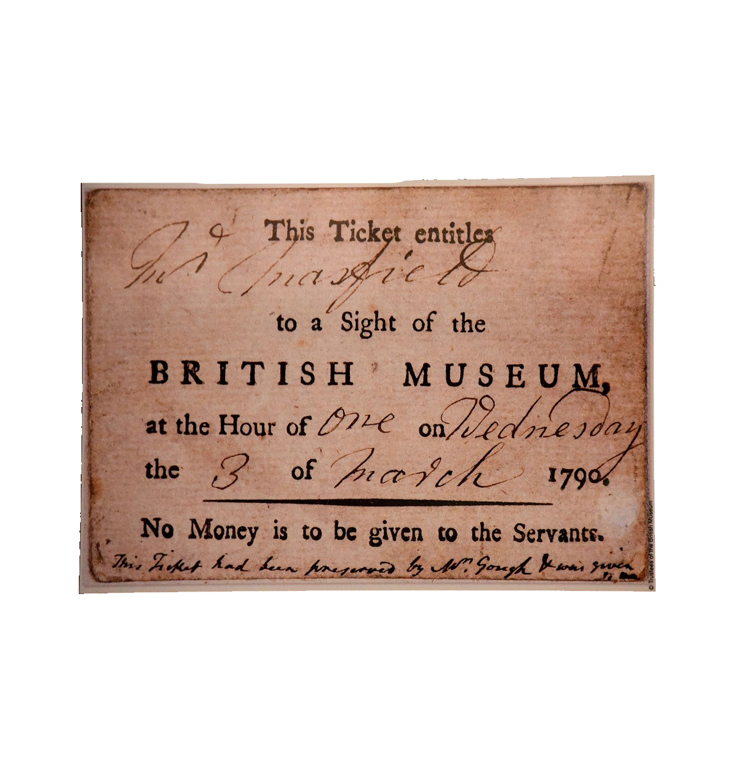 This Ticket entitles
Mrs. Masfield
to a Sight of the
BRITISH MUSEUM,
at the Hour of One on Wednesday
the 3 of March 1790.
No Money is to be given to the Servants.
This Ticket had been preserved by Mr. Gough & was given
© Trustees of the British Museum